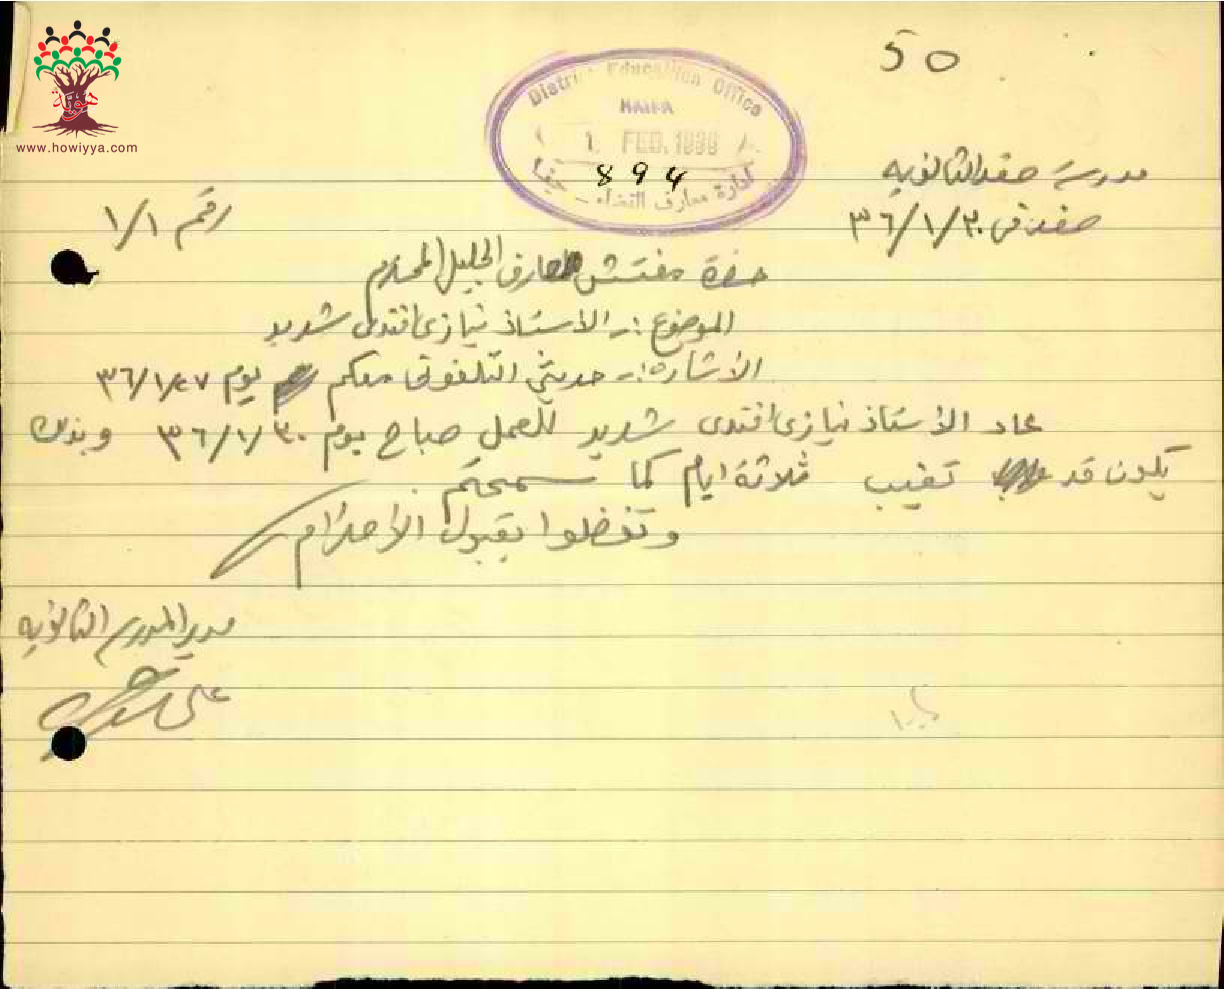 50
هوية
www.howiyya.com
District Education Office
HAIFA
1 FEB. 1936
894
ادارة معارف اللواء - حيفا
مدرسة صفد الثانويه
صفد في ٣٠/١/٣٦
رقم ١/١
حضرة مفتش معارف الجليل المحترم
الموضوع :- الاستاذ نيازي افندي شديد
الاشاره :- حديثي التلفوني معكم يوم ٢٧/١/٣٦
عاد الأستاذ نيازي افندي شديد للعمل صباح يوم ٣٠/١/٣٦ وبذلك
يكون قد تغيب ثلاثة ايام كما سمحتم
وتفضلوا بقبول الاحترام
مدير المدرسه الثانويه
علي